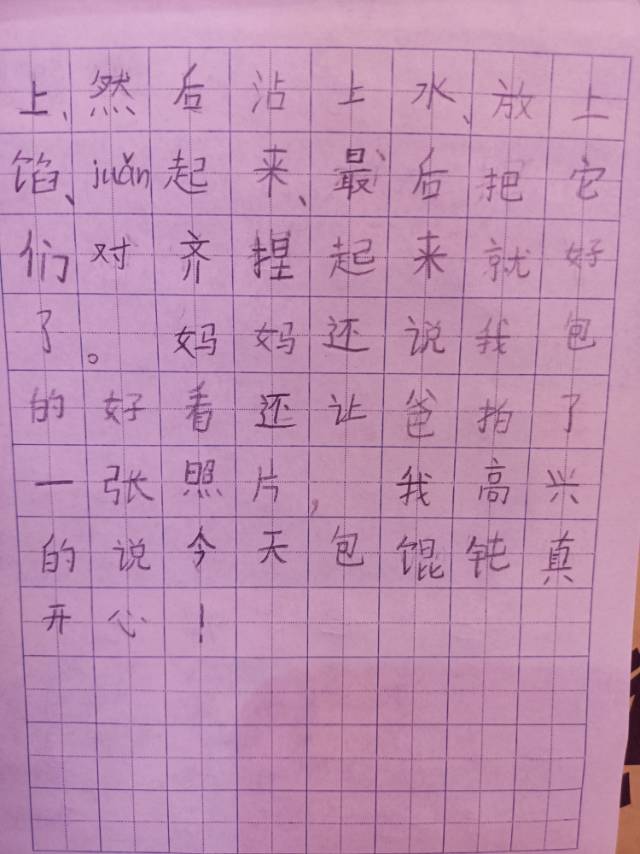 上、然后沾上水、放上
馅、juǎn起来、最后把它
们对齐捏起来就好
了。妈妈还说我包
的好看还让爸拍了
一张照片，我高兴
的说今天包馄钝真
开心！